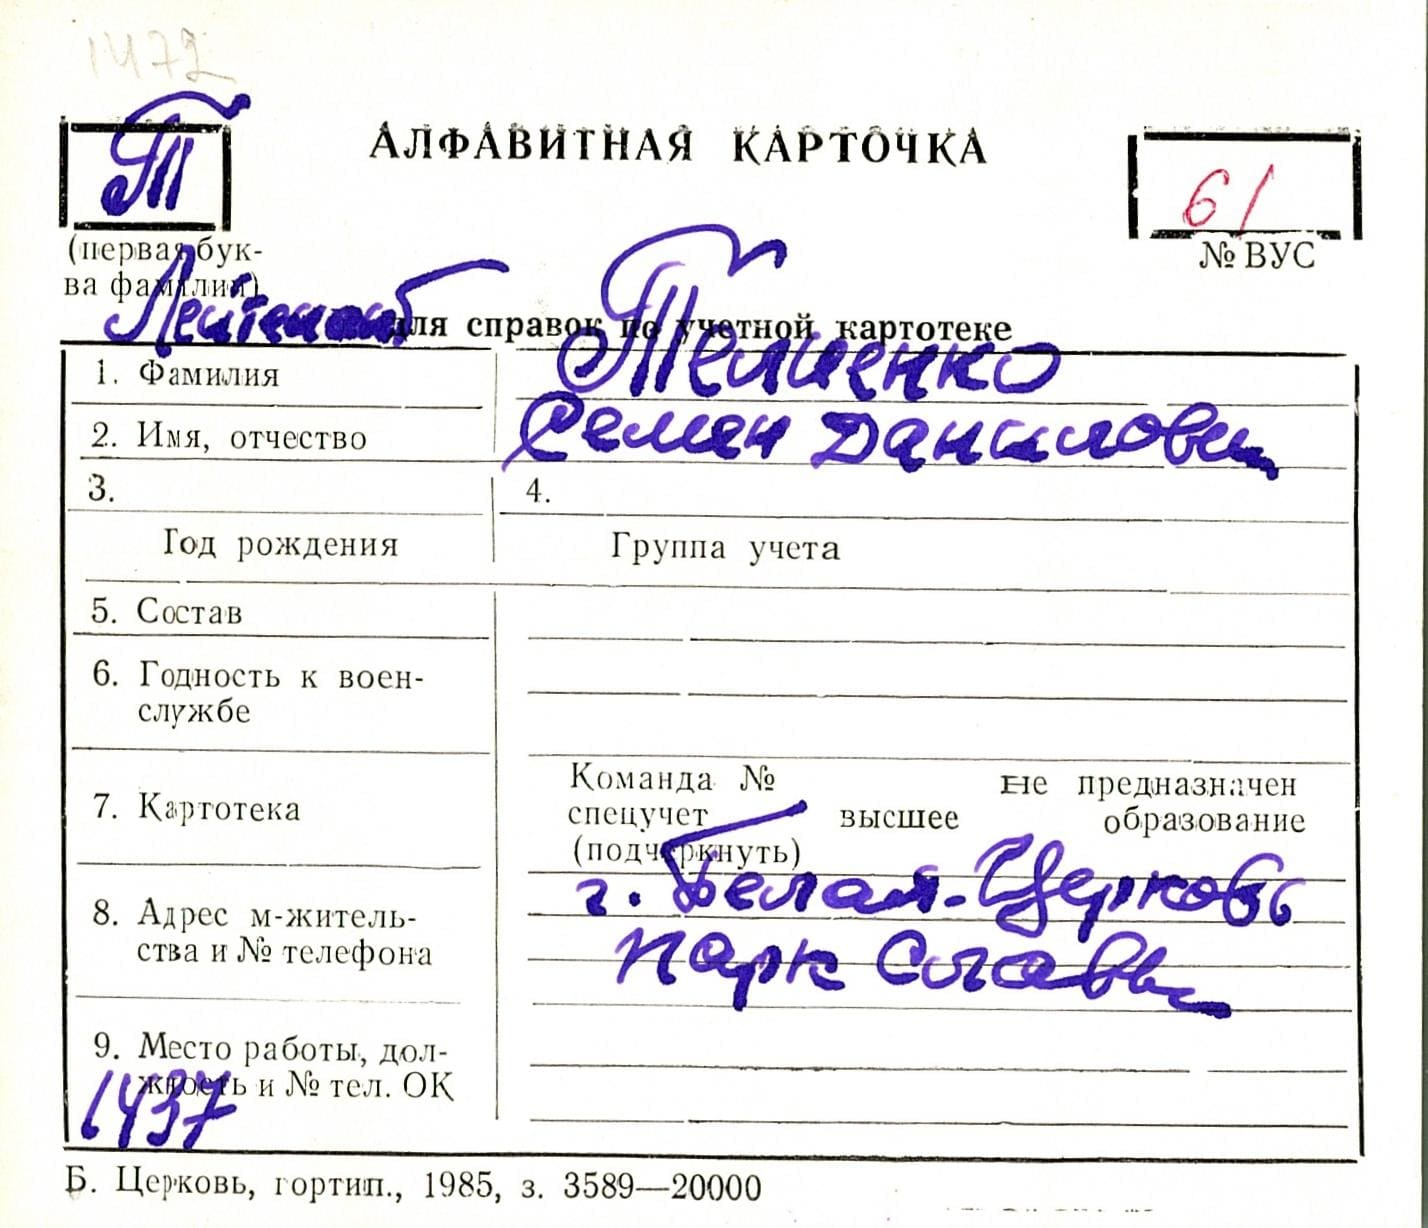 1472
Т
АЛФАВИТНАЯ КАРТОЧКА
61
(первая бук-
ва фамилии)
№ ВУС
Лейтенант
для справок по учетной картотеке
1. Фамилия
2. Имя, отчество Семен Данилович
3. 4.
Год рождения Группа учета
5. Состав
6. Годность к воен-
службе
7. Картотека
Команда № не предназначен
спецучет высшее образование
(подчеркнуть)
8. Адрес м-житель-
ства и № телефона
г. Белая-Церковь
парк Славы
9. Место работы, дол-
жность и № тел. ОК
1437
Б. Церковь, гортип., 1985, з. 3589—20000